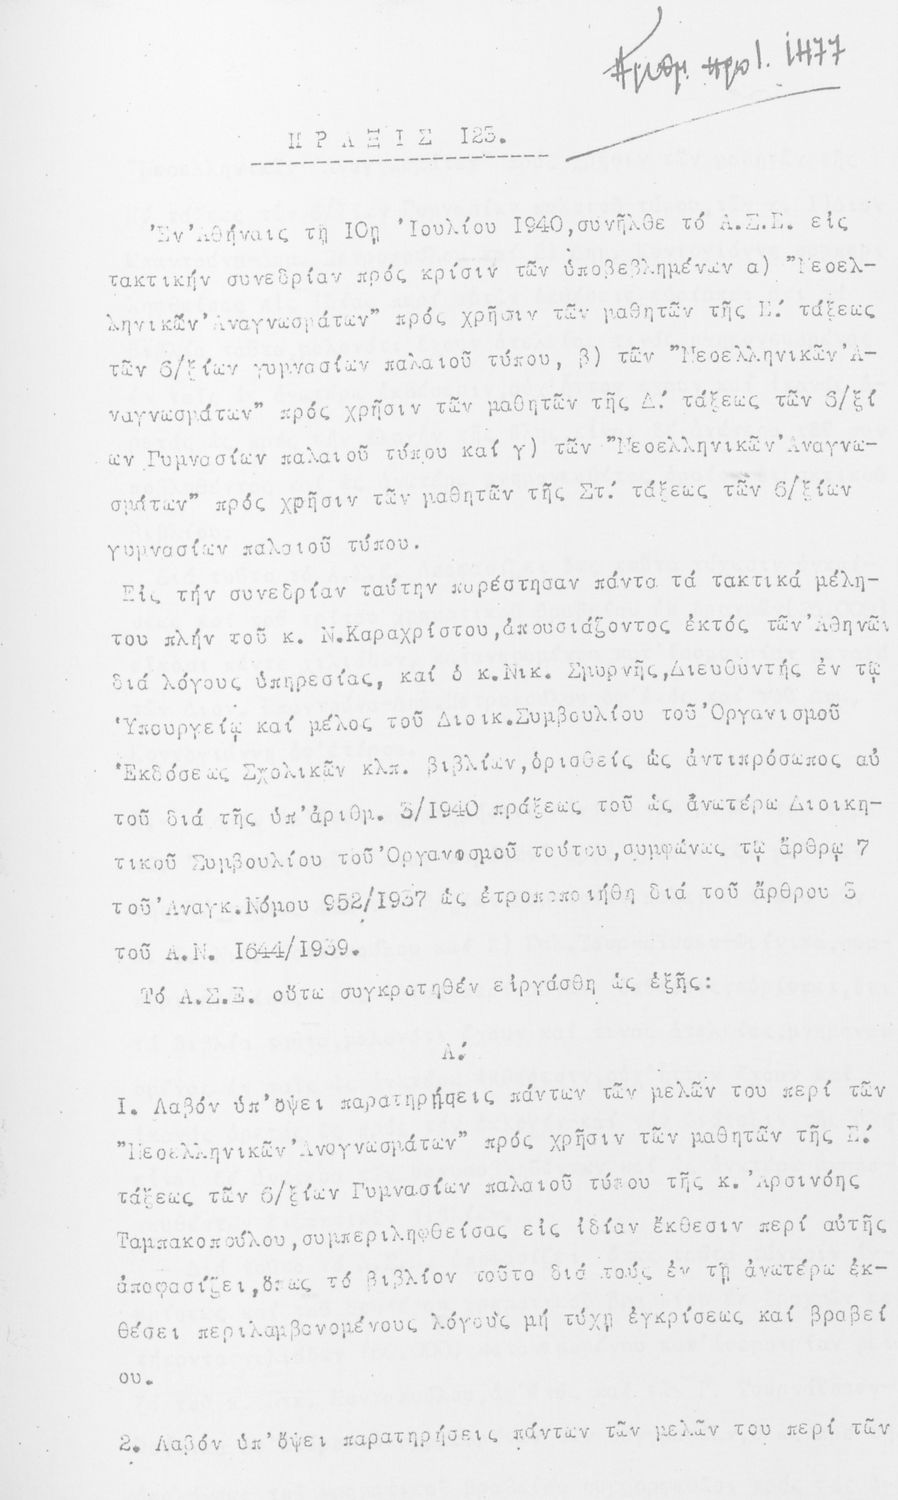 Αριθμ. πρωτ. 1477
ΠΡΑΞΙΣ I23.
Ἐν Ἀθήναις τῇ I0ῃ Ἰουλίου I940,συνῆλθε τό Α.Σ.Ε. εἰς
τακτικήν συνεδρίαν πρός κρίσιν τῶν ὑποβεβλημένων α) "Νεοελ-
ληνικῶν Ἀναγνωσμάτων" πρός χρῆσιν τῶν μαθητῶν τῆς Ε΄ τάξεως
τῶν 6/ξίων γυμνασίων παλαιοῦ τύπου, β) τῶν "Νεοελληνικῶν Ἀ-
ναγνωσμάτων" πρός χρῆσιν τῶν μαθητῶν τῆς Δ΄ τάξεως τῶν 6/ξί
ων Γυμνασίων παλαιοῦ τύπου καί γ) τῶν "Νεοελληνικῶν Ἀναγνω-
σμάτων" πρός χρῆσιν τῶν μαθητῶν τῆς Στ΄ τάξεως τῶν 6/ξίων
γυμνασίων παλαιοῦ τύπου.
Εἰς τήν συνεδρίαν ταύτην παρέστησαν πάντα τά τακτικά μέλη-
του πλήν τοῦ κ. Ν.Καραχρίστου,ἀπουσιάζοντος ἐκτός τῶν Ἀθηνῶν
διά λόγους ὑπηρεσίας, καί ὁ κ.Νικ. Σμυρνῆς,Διευθυντής ἐν τῷ
Ὑπουργείῳ καί μέλος τοῦ Διοικ.Συμβουλίου τοῦ Ὀργανισμοῦ
Ἐκδόσεως Σχολικῶν κλπ. βιβλίων,ὁρισθείς ὡς ἀντιπρόσωπος αὐ
τοῦ διά τῆς ὑπ' ἀριθμ. 3/I940 πράξεως τοῦ ὡς ἀνωτέρω Διοικη-
τικοῦ Συμβουλίου τοῦ Ὀργανισμοῦ τούτου,συμφώνως τῷ ἄρθρῳ 7
τοῦ Ἀναγκ.Νόμου 952/I937 ὡς ἐτροποποιήθη διά τοῦ ἄρθρου 3
τοῦ Α.Ν. I644/I939.
Τό Α.Σ.Ε. οὕτω συγκροτηθέν εἰργάσθη ὡς ἑξῆς:
Α΄
I. Λαβόν ὑπ' ὄψει παρατηρήσεις πάντων τῶν μελῶν του περί τῶν
"Νεοελληνικῶν Ἀναγνωσμάτων" πρός χρῆσιν τῶν μαθητῶν τῆς Ε΄
τάξεως τῶν 6/ξίων Γυμνασίων παλαιοῦ τύπου τῆς κ. Ἀρσινόης
Ταμπακοπούλου,συμπεριληφθείσας εἰς ἰδίαν ἔκθεσιν περί αὐτῆς
ἀποφασίζει,ὅπως τό βιβλίον τοῦτο διά τούς ἐν τῇ ἀνωτέρω ἐκ-
θέσει περιλαμβανομένους λόγους μή τύχῃ ἐγκρίσεως καί βραβεί
ου.
2. Λαβόν ὑπ' ὄψει παρατηρήσεις πάντων τῶν μελῶν του περί τῶν